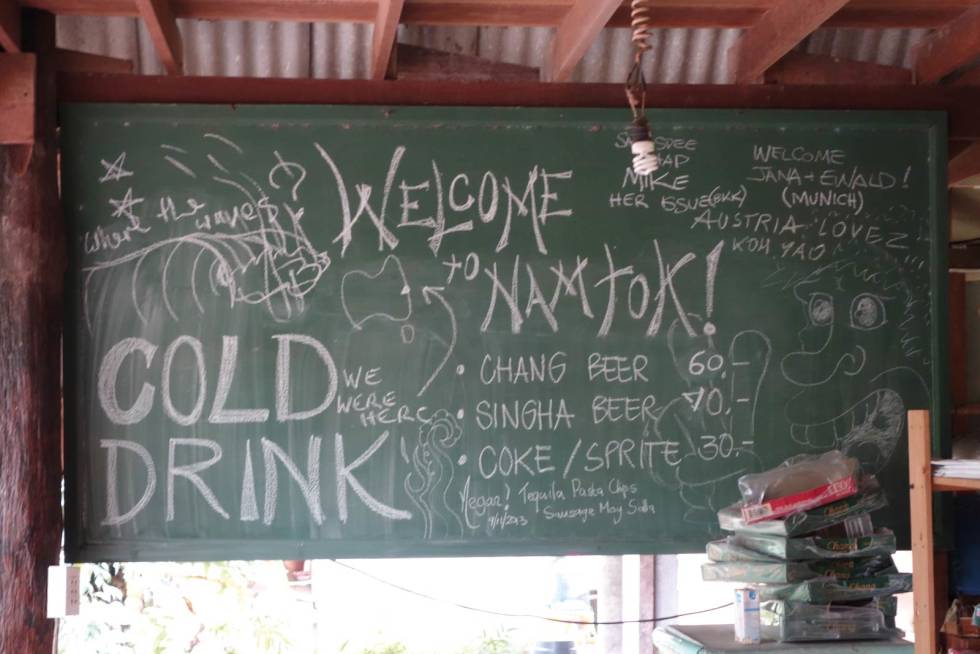 WELCOME
to NAMTOK!
MIKE
HER
WELCOME
JANA + EWALD!
(MUNICH)
AUSTRIA LOVEZ
KOH YAO
where the waves
COLD
DRINK!
WE
WERE
HERE
• CHANG BEER 60,-
• SINGHA BEER 70,-
• COKE/SPRITE 30,-
Vegan! Tequila Pasta Chips
Sausage May
Chang
Chang